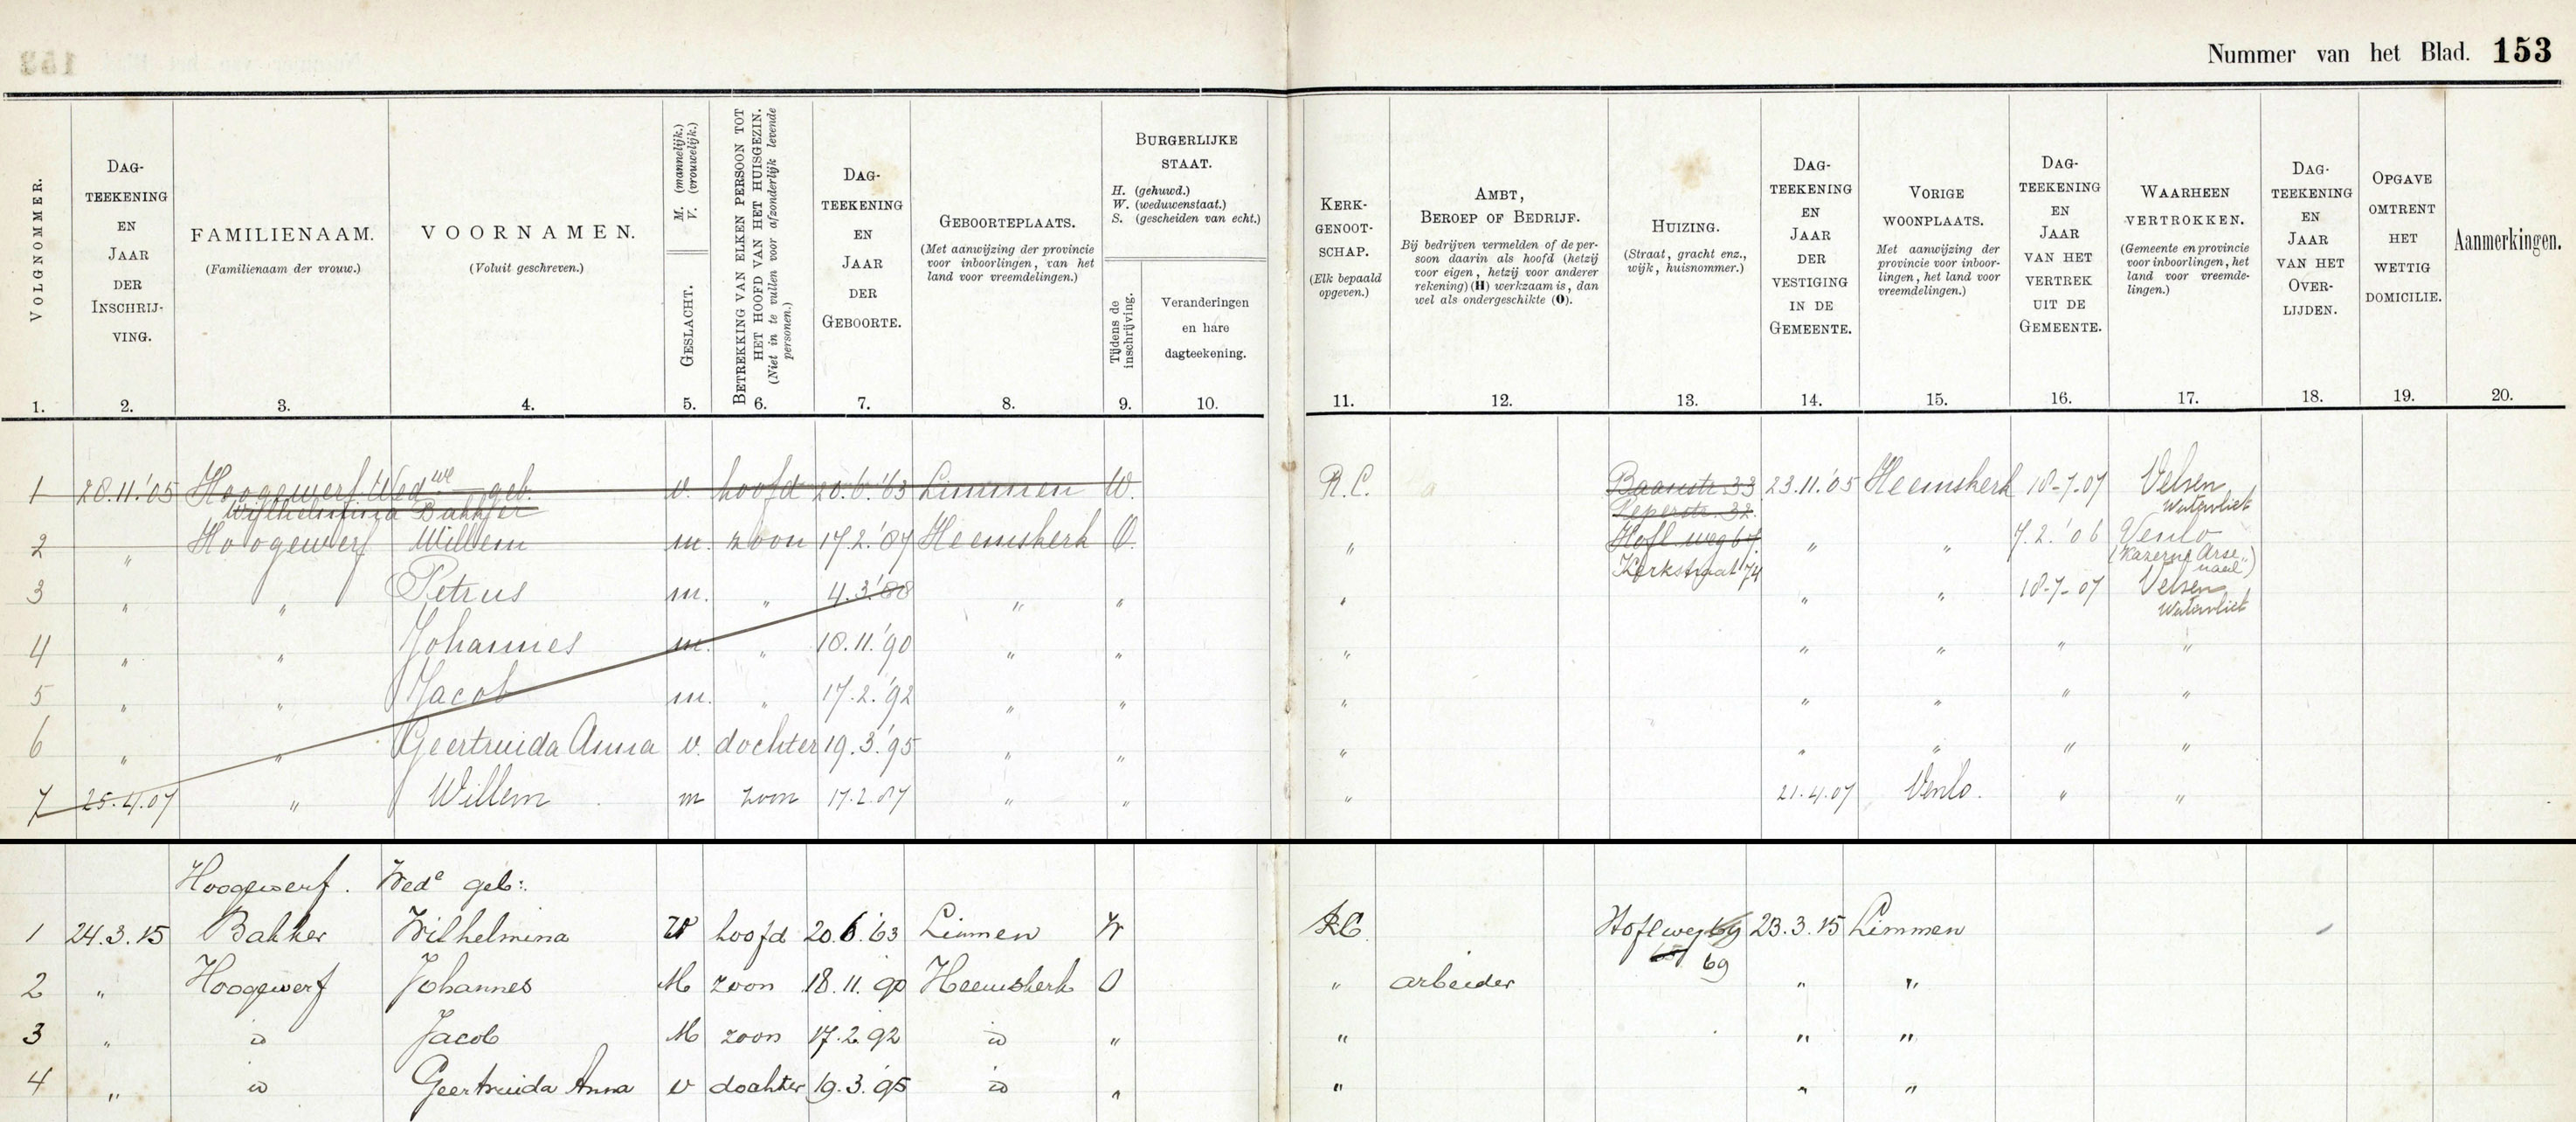 Nummer van het Blad. 153
VOLGNOMMER.
1.
DAG-
TEEKENING
EN
JAAR
DER
INSCHRIJ-
VING.
2.
FAMILIENAAM.
(Familienaam der vrouw.)
3.
VOORNAMEN.
(Voluit geschreven.)
4.
GESLACHT.
M. (mannelijk.)
V. (vrouwelijk.)
5.
BETREKKING VAN ELKEN PERSOON TOT
HET HOOFD VAN HET HUISGEZIN.
(Niet in te vullen voor afzonderlijk levende
personen.)
6.
DAG-
TEEKENING
EN
JAAR
DER
GEBOORTE.
7.
GEBOORTEPLAATS.
(Met aanwijzing der provincie
voor inboorlingen, van het
land voor vreemdelingen.)
8.
BURGERLIJKE
STAAT.
H. (gehuwd.)
W. (weduwenstaat.)
S. (gescheiden van echt.)
Tijdens de
inschrijving.
9.
Veranderingen
en hare
dagteekening.
10.
KERK-
GENOOT-
SCHAP.
(Elk bepaald
opgeven.)
11.
AMBT,
BEROEP OF BEDRIJF.
Bij bedrijven vermelden of de per-
soon daarin als hoofd (hetzij
voor eigen, hetzij voor anderer
rekening) (H) werkzaam is, dan
wel als ondergeschikte (O).
12.
HUIZING.
(Straat, gracht enz.,
wijk, huisnommer.)
13.
DAG-
TEEKENING
EN
JAAR
DER
VESTIGING
IN DE
GEMEENTE.
14.
VORIGE
WOONPLAATS.
Met aanwijzing der
provincie voor inboor-
lingen, het land voor
vreemdelingen.)
15.
DAG-
TEEKENING
EN
JAAR
VAN HET
VERTREK
UIT DE
GEMEENTE.
16.
WAARHEEN
VERTROKKEN.
(Gemeente en provincie
voor inboorlingen, het
land voor vreemde-
lingen.)
17.
DAG-
TEEKENING
EN
JAAR
VAN HET
OVER-
LIJDEN.
18.
OPGAVE
OMTRENT
HET
WETTIG
DOMICILIE.
19.
Aanmerkingen.
20.
1 28.11.'05 Hoogewerf Wed we geb. v. hoofd 20.6.'63 Limmen W. R.C. Baanstr. 33 23.11.'05 Heemskerk 18-7-07 Velsen
Wilhelmina Bakker Peperstr. 32. Watervliet
2 " Hoogewerf Willem m. zoon 17.2.'87 Heemskerk O. " Hofl. weg 67. " " 7.2.'06 Venlo
Kerkstraat 74 (Kazerne Arse-
naal)
3 " " Petrus m. " 4.3.'88 " " " " " 18-7-07 Velsen
Watervliet
4 " " Johannes m. " 18.11.'90 " " " " " " "
5 " " Jacob m. " 17.2.'92 " " " " " " "
6 " " Geertruida Anna v. dochter 19.3.'95 " " " " " " "
7 25.4.07 " Willem m zoon 17.2.87 " " " 21.4.07 Venlo. " "
Hoogewerf. Wede geb:
1 24.3.15 Bakker Wilhelmina hoofd 20.6.'63 Limmen W R.C. Hoflweg 69 23.3.15 Limmen
69
2 " Hoogewerf Johannes M zoon 18.11.90 Heemskerk O " arbeider " "
3 " id Jacob M zoon 17.2.92 id " " " "
4 " id Geertruida Anna v dochter 19.3.'95 id " " " "